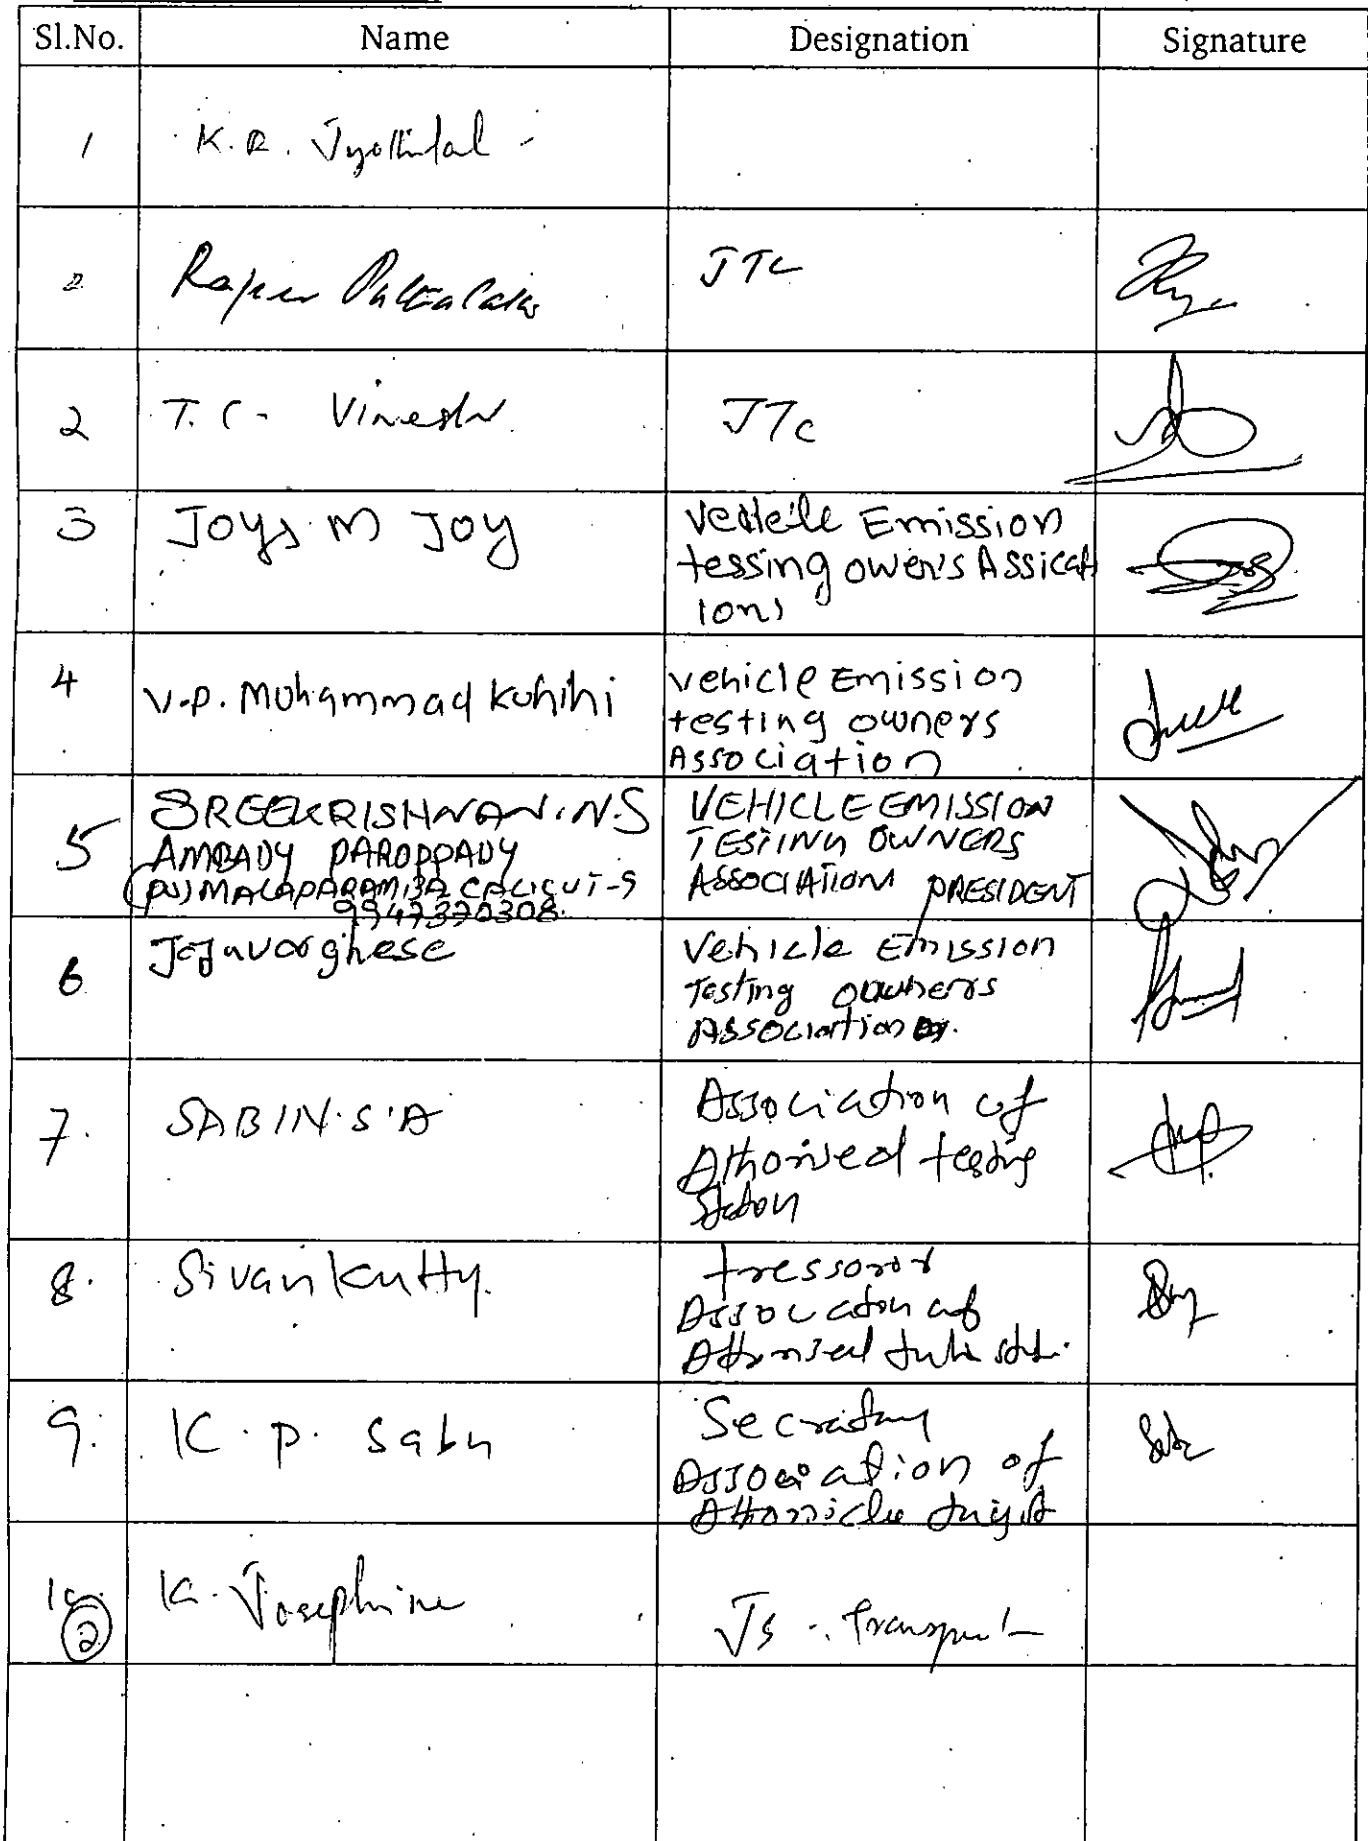 Sl.No. Name Designation Signature
1 K.R. Jyothilal -
2 Rajeev JTC
2 T.C. Vinesh JTC
3 Joys M Joy
Vehicle Emission
tessing ower's Assicat
ions
4 V.P. Muhammad Kunihi
vehicle Emission
testing owners
Association
5 SREEKRISHNAN.N.S
AMBADY PAROPPADY
(PO) MALAPARAMBA CALICUT-9
9947370308
VEHICLE EMISSION
TESTING OWNERS
ASSOCIATION PRESIDENT
6 Jojuvarghese
Vehicle Emission
Testing ouwners
Association
7. SABIN.S.A
Association of
Athorised testing
Station
8. Sivankutty.
tressoror
Association of
9. K.P. Sabu
Secratary
Association of
10. (2) K. Josephine JS - Transport